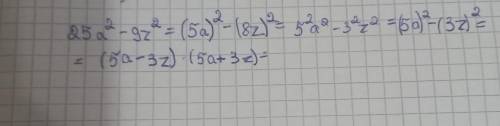 25a² - 9z² = (5a)² - (8z)² = 5²a² - 3²z² = (5a)² - (3z)² =
= (5a - 3z) · (5a + 3z) =